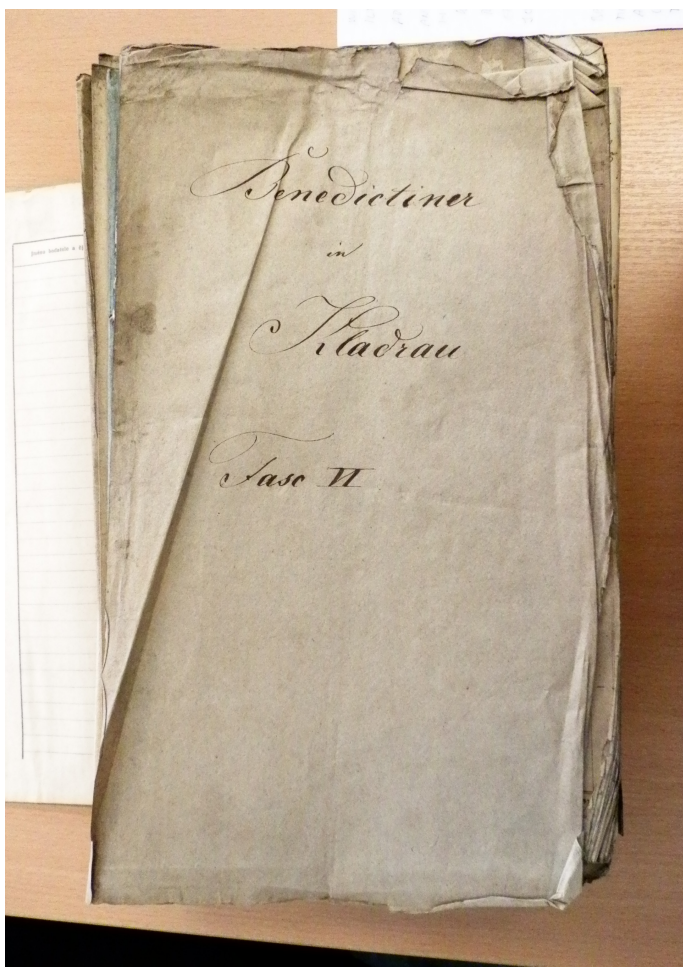 Benedictiner
in
Kladrau
Fasc VI